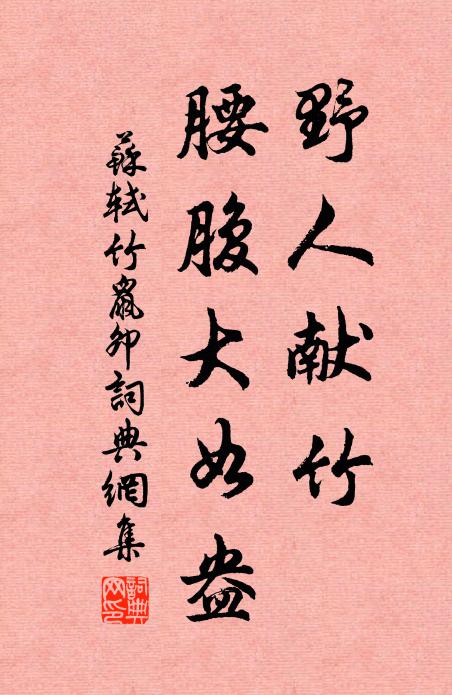 野人献竹
腰腹大如盎
蘇軾竹鼠卯詞典網集
詞典
网印